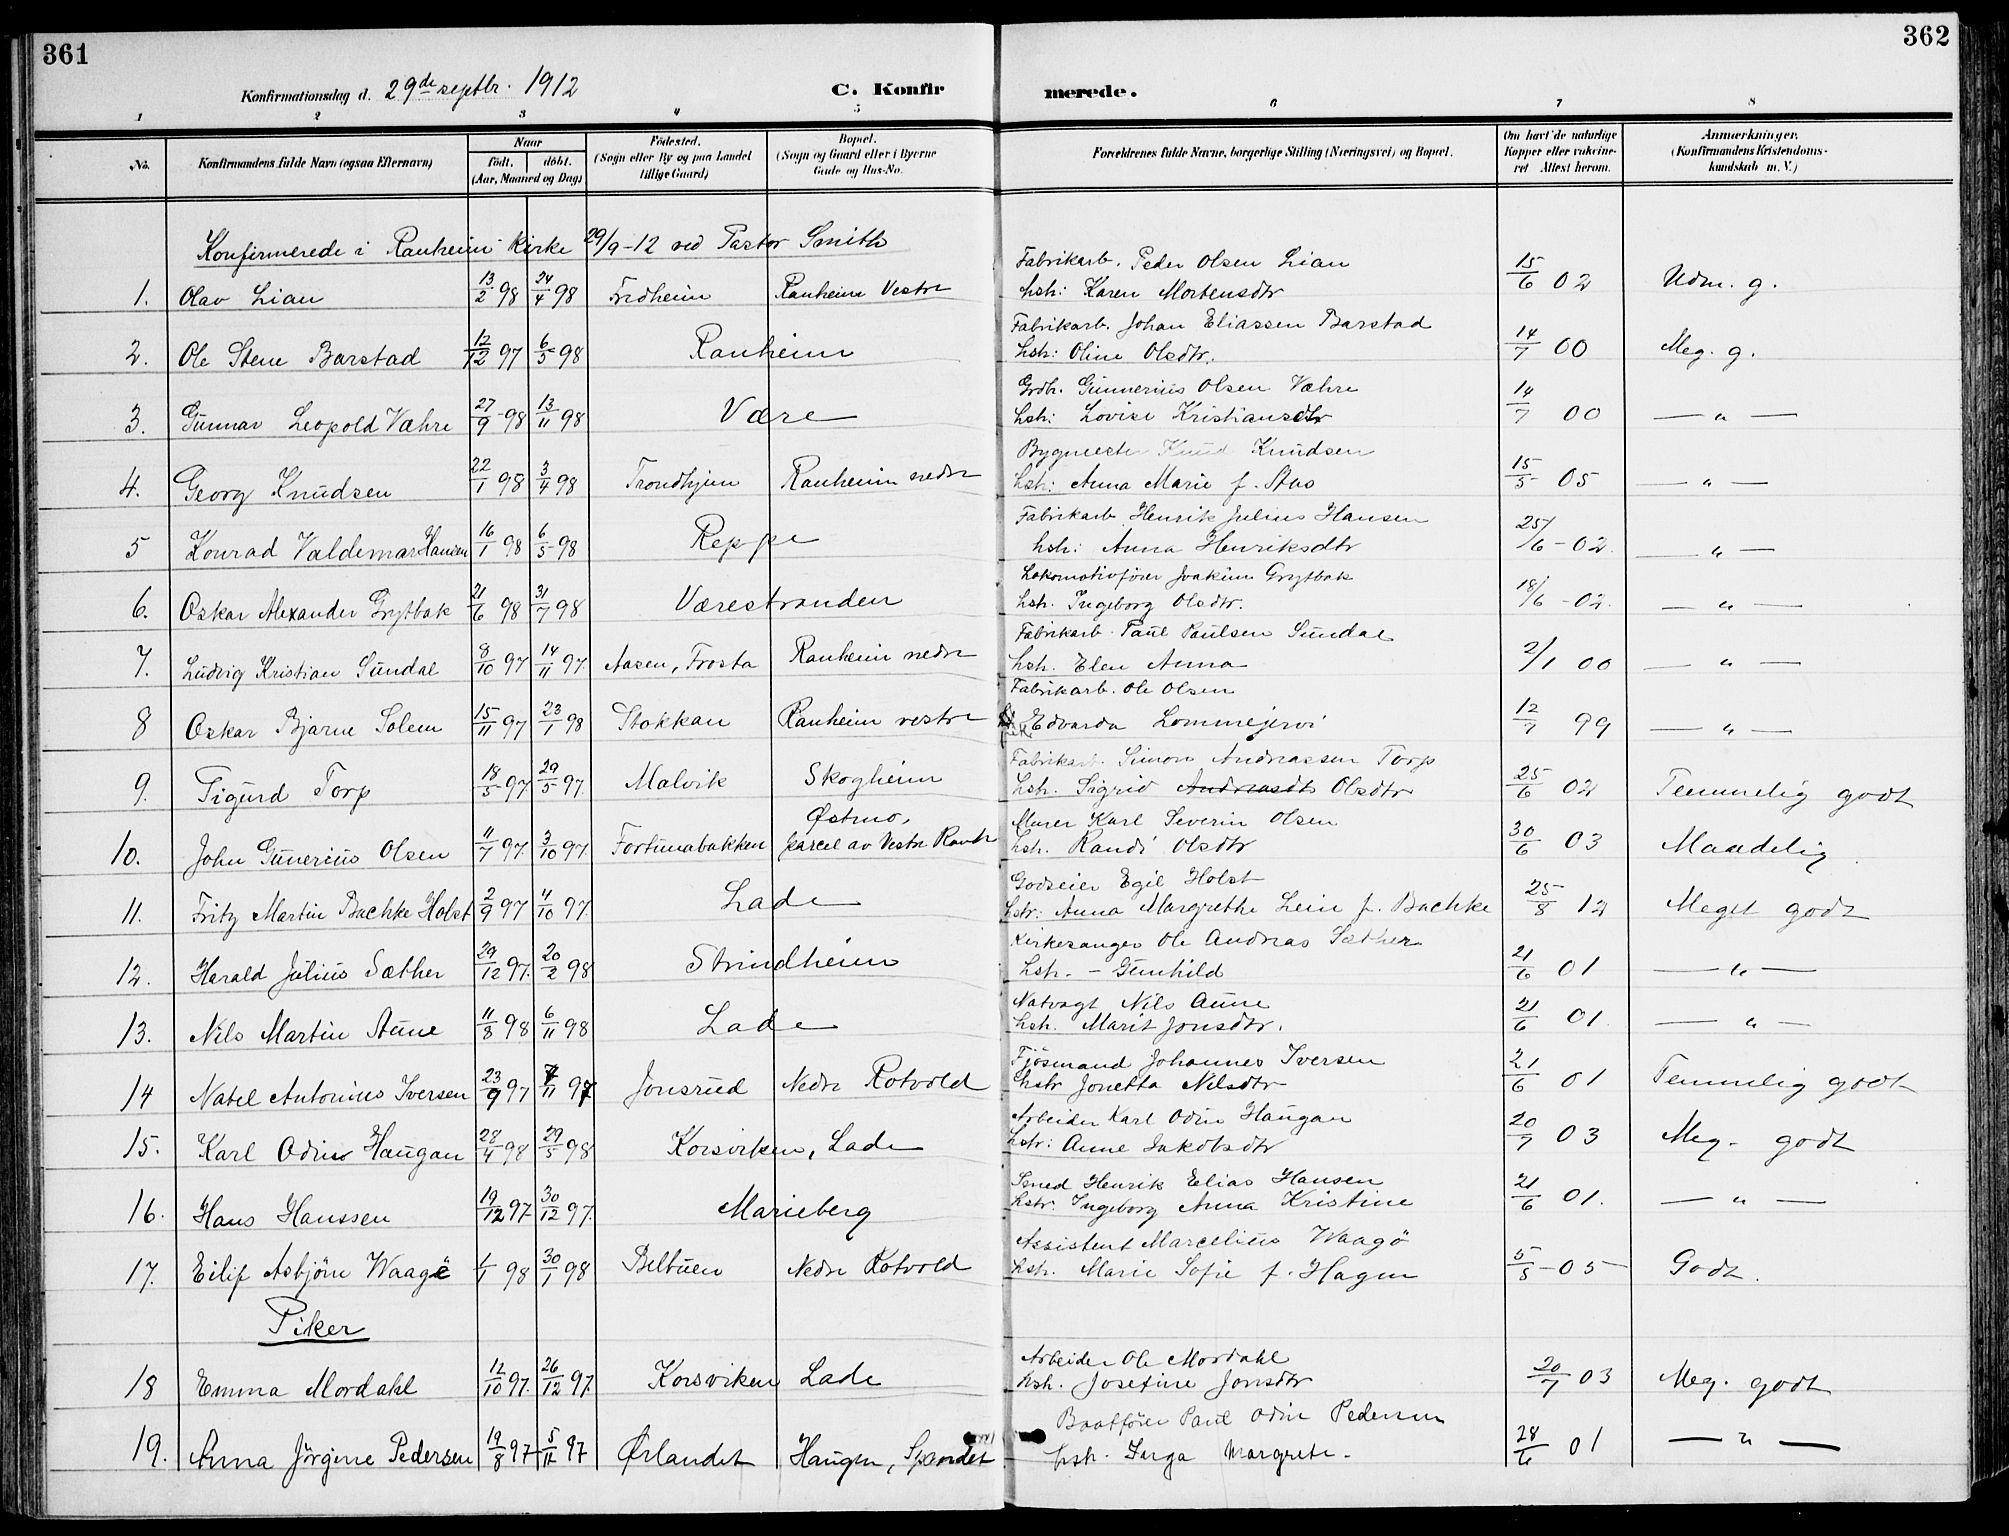 361
362
Konfirmationsdag d. 29de septbr. 1912
C. Konfir merede.
1 2 3 4 5 6 7 8
No. Konfirmandens fulde Navn (ogsaa Efternavn) Naar født, døbt. (Aar, Maaned og Dag) Fødested. (Sogn eller By og paa Landet tillige Gaard) Bopæl. (Sogn og Gaard eller i Byerne Gade og Hus-No. Forældrenes fulde Navne, borgerlige Stilling (Næringsvei) og Bopæl. Om havt de naturlige Kopper eller vakcineret Attest herom. Anmærkninger. (Konfirmandens Kristendomskundskab m. V.)
Konfirmerede i Ranheim Kirke 29/9-12 ved Pastor Smith
Fabrikarb. Peder Olsen Lian
1. Olav Lian 13/2 98 24/4 98 Fredheim Ranheim Vestre hsh: Karen Mortensdtr 15/6 02 Udm. g.
Fabrikarb. Johan Eliassen Barstad
2. Ole Stene Barstad 12/12 97 6/5 98 Ranheim hsh: Oline Olsdtr. 14/7 00 Meg. g.
Grdb. Gunnerius Olsen Væhre
3. Gunnar Leopold Væhre 27/9 98 13/11 98 Være hsh: Lovise Kristiansdtr 14/7 00 — " —
Bygmester Knud Knudsen
4. Georg Knudsen 22/1 98 3/4 98 Trondhjem Ranheim nedre hsh: Anna Marie f. Aas 15/5 05 — " —
Fabrikarb. Henrik Julius Hansen
5 Konrad Valdemar Hansen 16/1 98 6/5 98 Reppe hsh: Anna Henriksdtr 25/6 - 02. — " —
Lokomotivfører Joakim Grytbak
6. Oskar Alexander Grytbak 21/6 98 31/7 98 Værestranden hsh. Ingeborg Olsdtr. 18/6 - 02. — " —
Fabrikarb. Paul Paulsen Sundal
7. Ludvig Kristian Sundal 8/10 97 14/11 97. Aasen, Frosta Ranheim nedre hsh. Elen Anna 2/1 00 — " —
Fabrikarb. Ole Olsen
8 Oskar Bjarne Solem 15/11 97 23/1 98 Stokkan Ranheim vestre Edvarda Lommejervi 12/7 99 — " —
Fabrikarb. Simon Andreassen Torp
9. Sigurd Torp 18/5 97 29/5 97. Malvik Skogheim hsh. Sigrid Andreasdt Olsdtr 25/6 02 Temmelig godt
Østmo, Murer Karl Severin Olsen
10. John Gunerius Olsen 11/7 97. 3/10 97. Fortunabakken parcel av Vestre Ranh hsh. Randi Olsdtr 30/6 03 Maadelig
Godseier Egil Holst
11. Fritz Martin Bachke Holst 2/9 97 4/10 97. Lade hstr: Anna Margrethe Lein f. Bachke 25/8 12 Meget godt
Kirkesanger Ole Andreas Sæther
12. Harald Julius Sæther 29/12 97. 20/2 98 Strindheim hsh. - Gunhild 21/6 01 — " —
Natvagt Nils Aune
13. Nils Martin Aune 11/8 98 6/11 98 Lade hsh. Marit Jonsdtr. 21/6 01 — " —
Fjøsmand Johannes Iversen
14 Natel Antonius Iversen 23/9 97 7/11 97 Jonsrud Nedre Rotvold hstr Jonetta Nilsdtr 21/6 01 Temmelig godt
Arbeider Karl Odin Haugan
15. Karl Odin Haugan 28/4 98 29/5 98 Korsviken, Lade hstr: Anne Jakobsdtr 20/7 03 Meg. godt
Smed Henrik Elias Hansen
16. Hans Hanssen 19/12 97. 30/12 97. Marieberg hstr. Ingeborg Anna Kristine 21/6 01. — " —
Assistent Marcelius Waagø
17. Eilif Asbjørn Waagø 1/1 98 30/1 98 Belbuen Nedre Rotvold hsh. Marie Sofie f. Hagen 5/5 - 05 Godt.
Piker
Arbeider Ole Mordahl
18 Emma Mordahl 12/10 97. 26/12 97. Korsviken Lade hsh. Josefine Jonsdtr 20/7 03 Meg. godt
Baatfører Paul Odin Pedersen
19. Anna Jørgine Pedersen 19/8 97 5/11 97 Ørlandet Haugen, Spandet hsh. Inga Margrete. 28/6 01 — " —